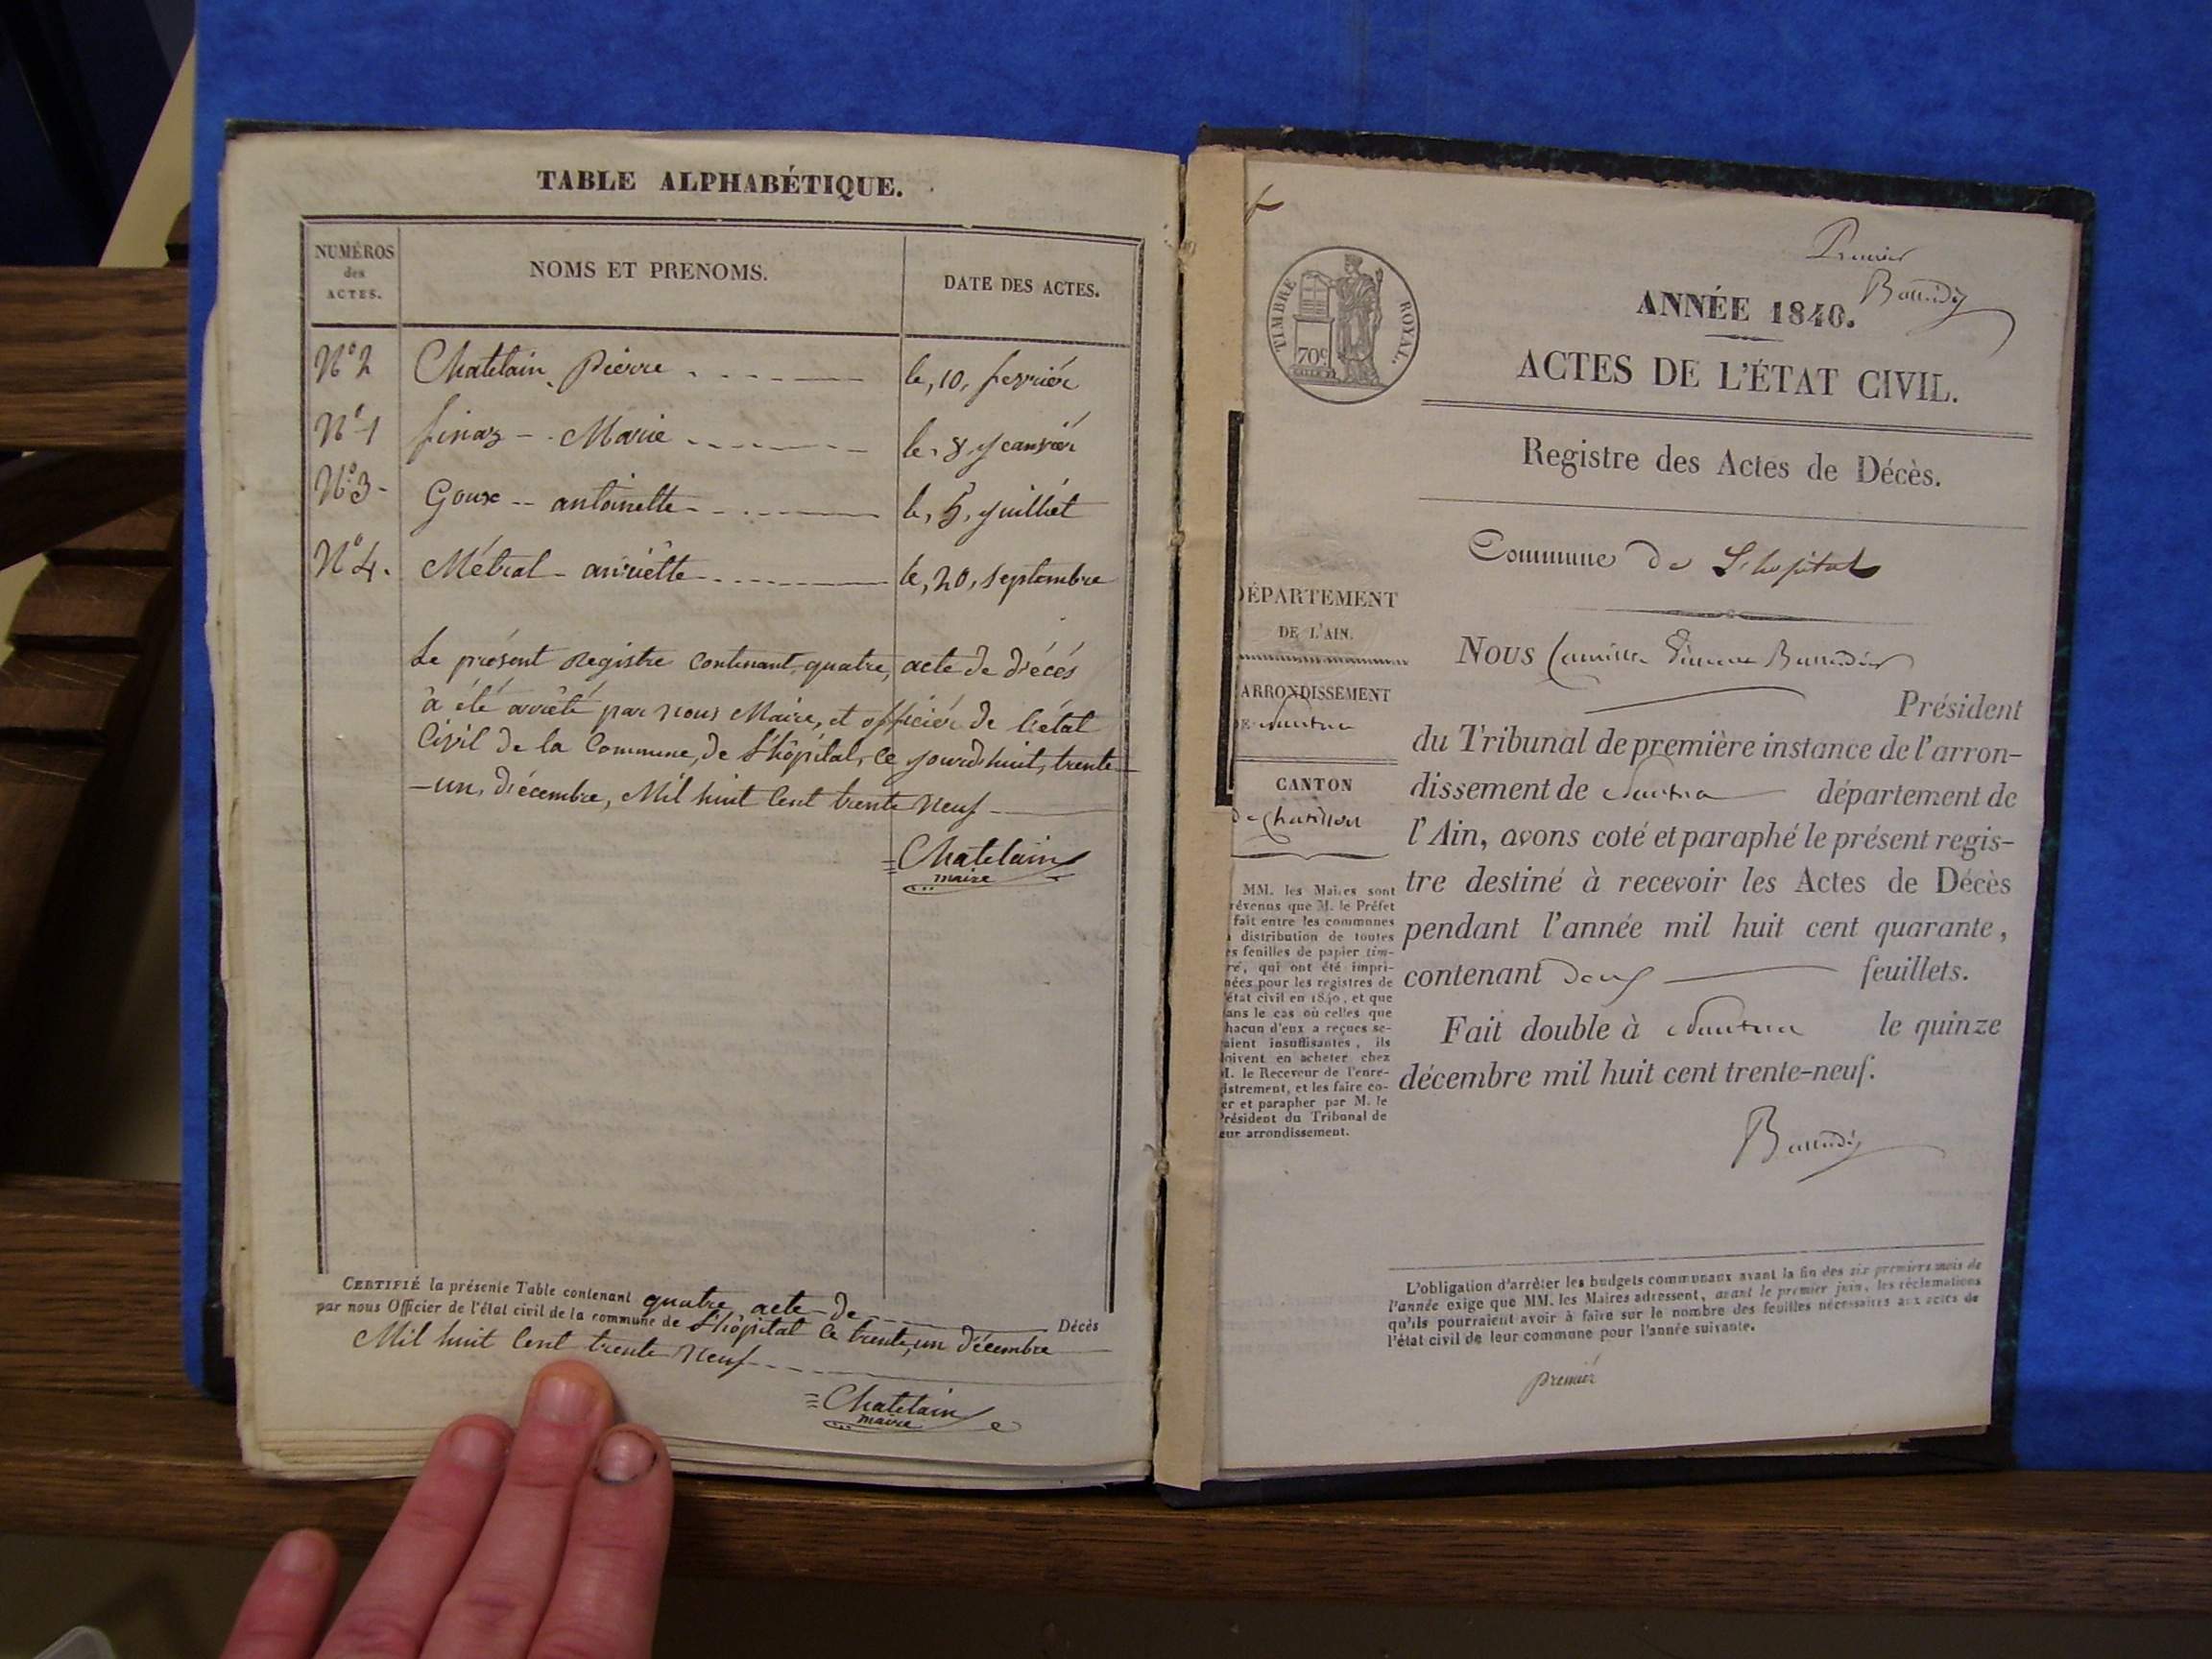 TABLE ALPHABÉTIQUE.
NUMÉROS
des
ACTES.
NOMS ET PRENOMS.
DATE DES ACTES.
N° 2 Chatelain Pierre le, 10, fevriér
N° 1 finaz - Marie le, 8, jeanviér
N° 3 - Goux -- antoinette le, 5, juilliét
N° 4. Métral - anriétte le, 20, septembre
Le présent Registre Contenant quatre, acte de décés
à été arrêté par nous Maire, et officiér de l'état
Civil de la Commune, de L'hôpital, Ce jourdhuit, trente
-un, décembre, Mil huit Cent trente Neuf
Chatelain
maire
CERTIFIÉ la présente Table contenant quatre, acte de Décès
par nous Officier de l'état civil de la commune de L'hôpital Ce trente, un décembre
Mil huit Cent trente Neuf
Chatelain
maire
Premier
TIMBRE ROYAL.
70c
ANNÉE 1840.
ACTES DE L'ÉTAT CIVIL.
Registre des Actes de Décès.
Commune de L'hopital
DÉPARTEMENT
DE L'AIN.
ARRONDISSEMENT
DE Nantua
CANTON
de Chatillon
MM. les Maires sont
révenus que M. le Préfet
fait entre les communes
a distribution de toutes
es feuilles de papier tim-
ré, qui ont été impri-
nées pour les registres de
état civil en 1840, et que
ans le cas où celles que
hacun d'eux a reçues se-
aient insuffisantes, ils
doivent en acheter chez
M. le Receveur de l'enre-
istrement, et les faire co-
er et parapher par M. le
Président du Tribunal de
eur arrondissement.
NOUS Camille Etienne
Président
du Tribunal de première instance de l'arron-
dissement de Nantua département de
l'Ain, avons coté et paraphé le présent regis-
tre destiné à recevoir les Actes de Décès
pendant l'année mil huit cent quarante,
contenant deux feuillets.
Fait double à Nantua le quinze
décembre mil huit cent trente-neuf.
L'obligation d'arrêter les budgets communaux avant la fin des six premiers mois de
l'année exige que MM. les Maires adressent, avant le premier juin, les réclamations
qu'ils pourraient avoir à faire sur le nombre des feuilles nécessaires aux actes de
l'état civil de leur commune pour l'année suivante.
premier